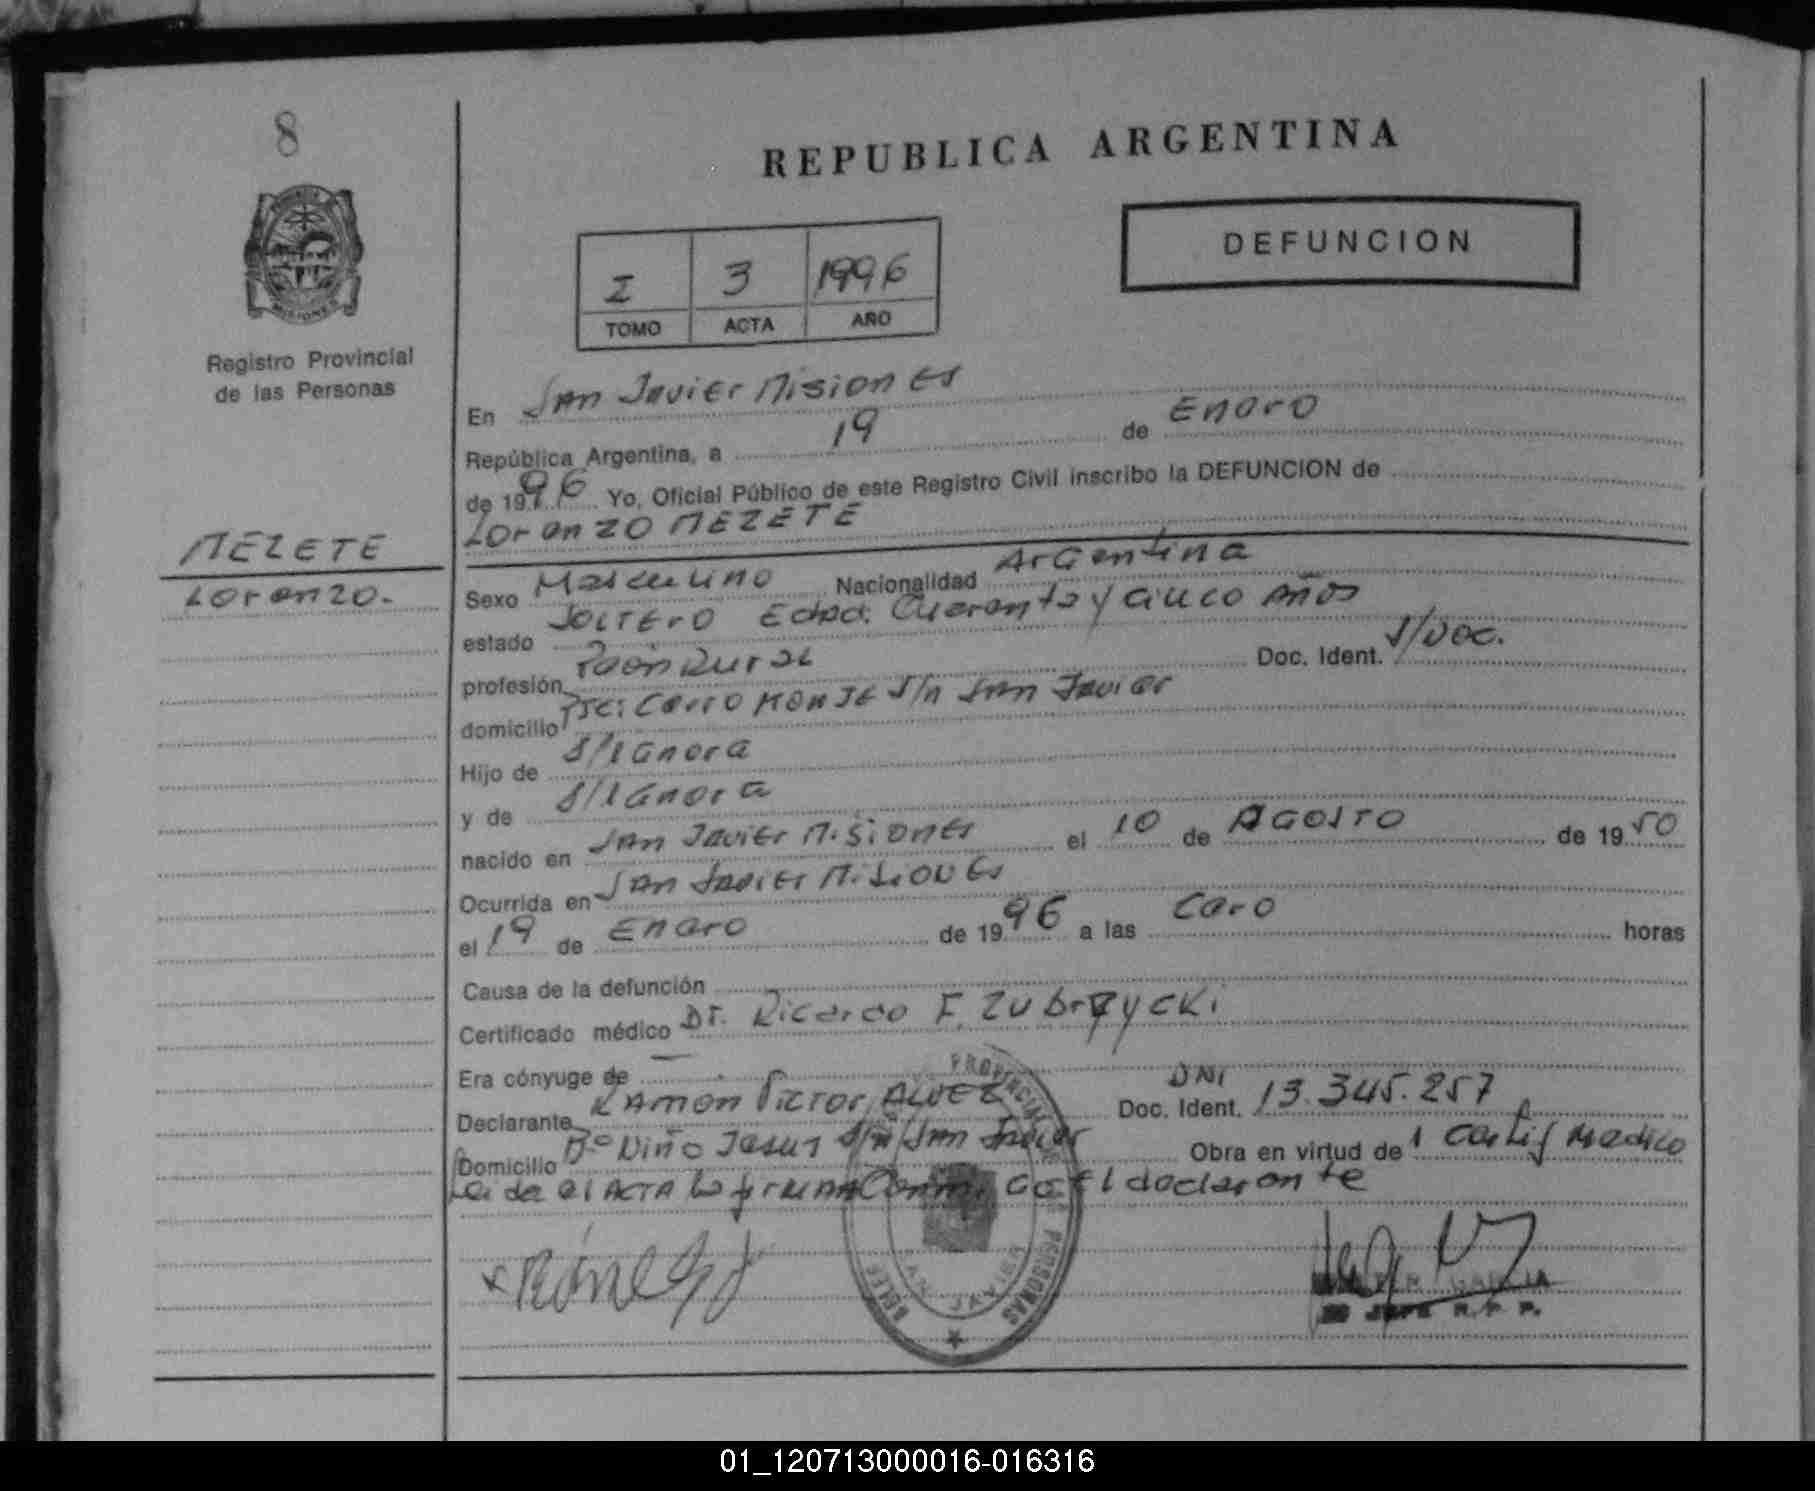 8
REPUBLICA ARGENTINA
DEFUNCION
I 3 1996
TOMO ACTA AÑO
Registro Provincial
de las Personas
En San Javier Misiones
República Argentina, a 19 de Enero
de 1996 Yo, Oficial Público de este Registro Civil inscribo la DEFUNCION de
Lorenzo MEZETE
MEZETE
Lorenzo.
Sexo Masculino Nacionalidad Argentina
estado SOLTErO Edad: Cuarenta y Cinco Años
profesión Peón Rural Doc. Ident. S/Doc.
domicilio Pje: Cerro MONJE S/n San Javier
Hijo de S/Ignora
y de S/Ignora
nacido en San Javier Misiones el 10 de AGOSTO de 1950
Ocurrida en San Javier Misiones
el 19 de Enero de 1996 a las Cero horas
Causa de la defunción
Certificado médico Dr. Ricardo F. Zubrzycki
Era cónyuge de —
Declarante RAmon Victor ALVEZ Doc. Ident. DNI 13.345.257
Domicilio Bº Niño Jesus S/n San Javier Obra en virtud de 1 Certif Medico
Leida el ACTA la firman Conmigo El declarante
PROVINCIAL DE LAS PERSONAS
SAN JAVIER
GARCIA
JEFE R. P. P.
01_120713000016-016316